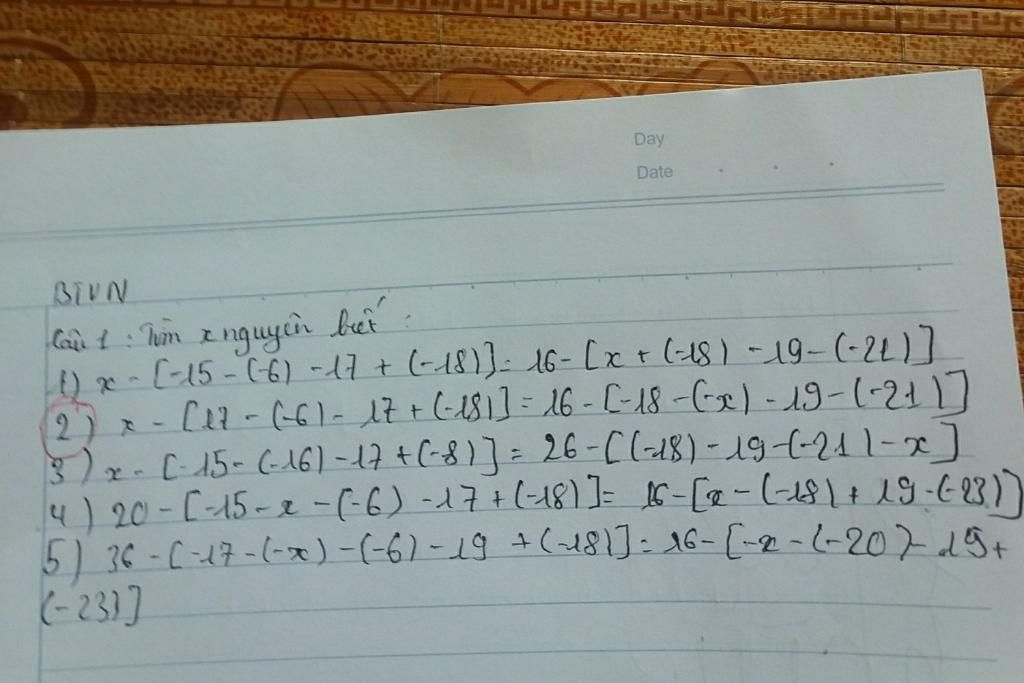 Day
Date
BTVN
Câu 1 : Tìm x nguyên biết :
1) x - [-15 - (-6) - 17 + (-18)] = 16 - [x + (-18) - 19 - (-21)]
2) x - [17 - (-6) - 17 + (-18)] = 16 - [-18 - (-x) - 19 - (-21)]
3) x - [-15 - (-16) - 17 + (-8)] = 26 - [(-18) - 19 - (-21) - x]
4) 20 - [-15 - x - (-6) - 17 + (-18)] = 16 - [x - (-18) + 19 - (-23)]
5) 36 - [-17 - (-x) - (-6) - 19 + (-18)] = 16 - [-x - (-20) - 19 +
(-23)]